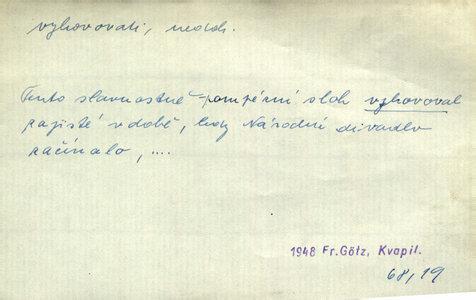 vyhovovati, nedok.
Tento slavnostně-pompézní sloh vyhovoval
zajisté v době, kdy Národní divadlo
začínalo, ....
1948 Fr.Götz, Kvapil.
68,19